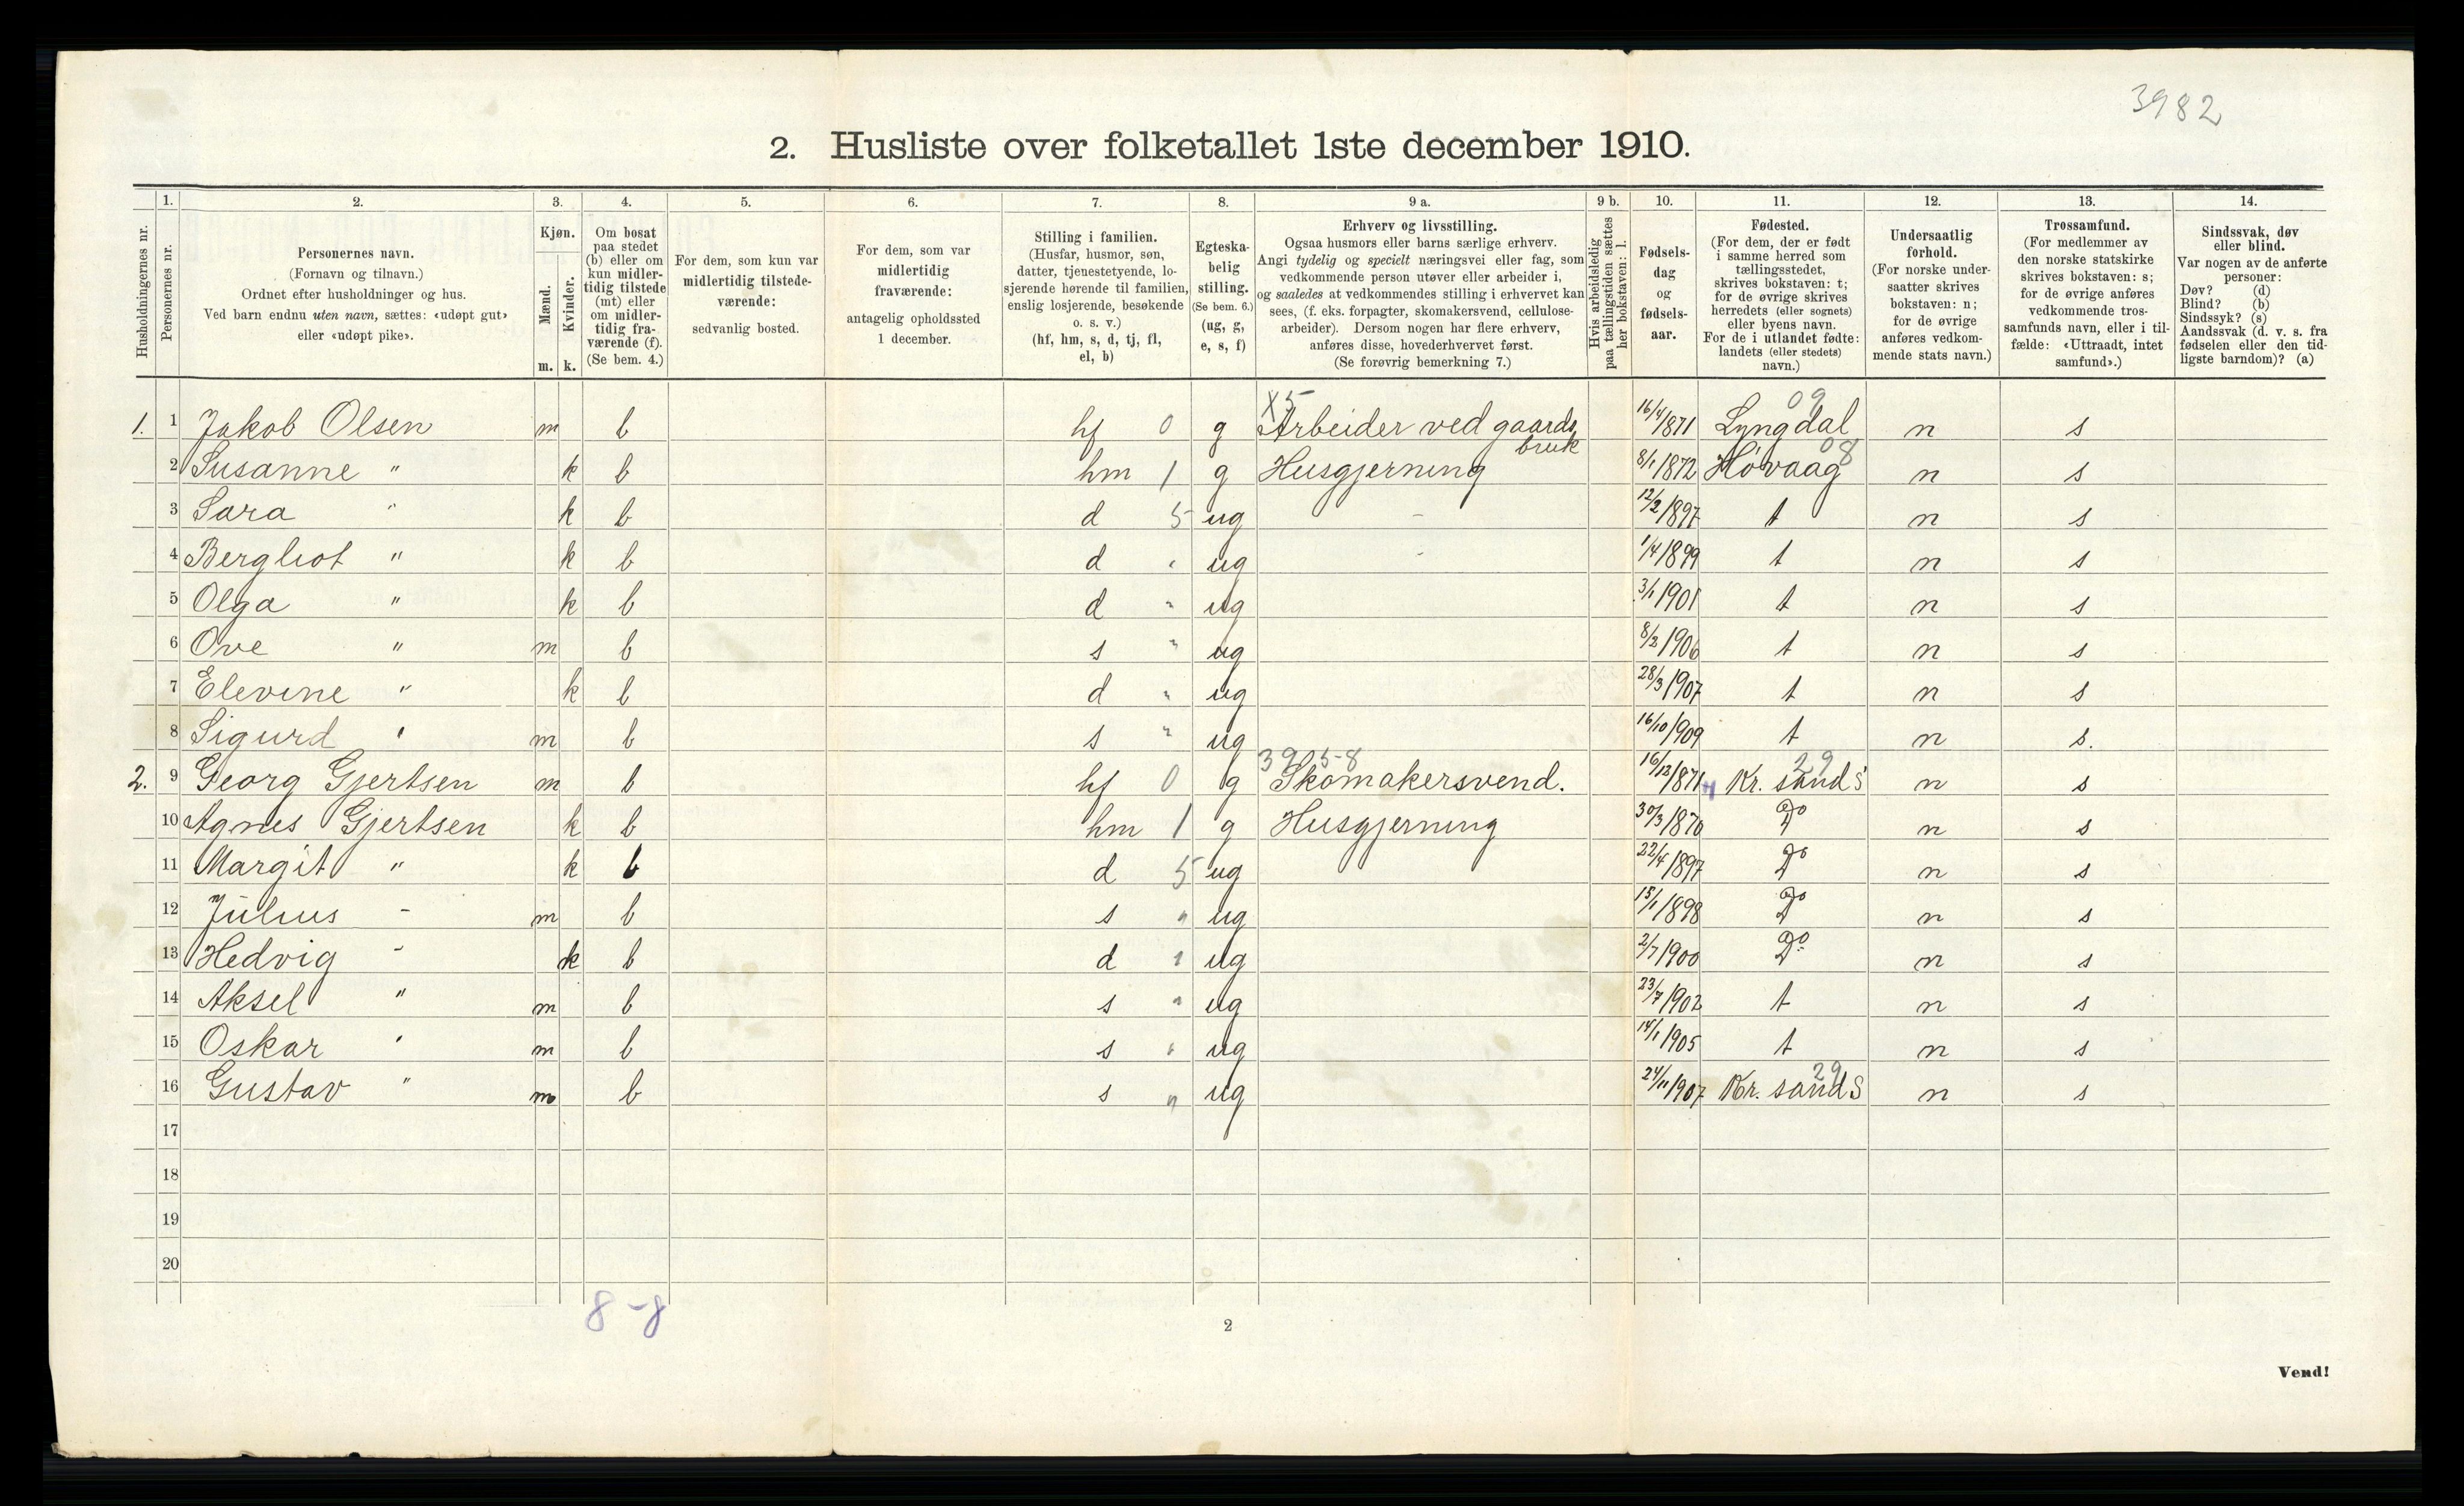 3982
2. Husliste over folketallet 1ste december 1910.
Husholdningernes nr.
1. Personernes nr.
2. Personernes navn.
(Fornavn og tilnavn.)
Ordnet efter husholdninger og hus.
Ved barn endnu uten navn, sættes: «udøpt gut»
eller «udøpt pike».
3. Kjøn.
Mænd. m.
Kvinder. k.
4. Om bosat
paa stedet
(b) eller om
kun midler-
tidig tilstede
(mt) eller
om midler-
tidig fra-
værende (f).
(Se bem. 4.)
5. For dem, som kun var
midlertidig tilstede-
værende:
sedvanlig bosted.
6. For dem, som var
midlertidig
fraværende:
antagelig opholdssted
1 december.
7. Stilling i familien.
(Husfar, husmor, søn,
datter, tjenestetyende, lo-
sjerende hørende til familien,
enslig losjerende, besøkende
o. s. v.)
(hf, hm, s, d, tj, fl,
el, b)
8. Egteska-
belig
stilling.
(Se bem. 6.)
(ug, g,
e, s, f)
9 a. Erhverv og livsstilling.
Ogsaa husmors eller barns særlige erhverv.
Angi tydelig og specielt næringsvei eller fag, som
vedkommende person utøver eller arbeider i,
og saaledes at vedkommendes stilling i erhvervet kan
sees, (f. eks. forpagter, skomakersvend, cellulose-
arbeider). Dersom nogen har flere erhverv,
anføres disse, hovederhvervet først.
(Se forøvrig bemerkning 7.)
9 b. Hvis arbeidsledig
paa tællingstiden sættes
her bokstaven: l.
10. Fødsels-
dag
og
fødsels-
aar.
11. Fødested.
(For dem, der er født
i samme herred som
tællingsstedet,
skrives bokstaven: t;
for de øvrige skrives
herredets (eller sognets)
eller byens navn.
For de i utlandet fødte:
landets (eller stedets)
navn.)
12. Undersaatlig
forhold.
(For norske under-
saatter skrives
bokstaven: n;
for de øvrige
anføres vedkom-
mende stats navn.)
13. Trossamfund.
(For medlemmer av
den norske statskirke
skrives bokstaven: s;
for de øvrige anføres
vedkommende tros-
samfunds navn, eller i til-
fælde: «Uttraadt, intet
samfund».)
14. Sindssvak, døv
eller blind.
Var nogen av de anførte
personer:
Døv? (d)
Blind? (b)
Sindssyk? (s)
Aandssvak (d. v. s. fra
fødselen eller den tid-
ligste barndom)? (a)
X5 09
1. 1 Jakob Olsen m b hf 0 g Arbeider ved gaards bruk 16/4 1871 Lyngdal n s
2 Susanne " k b hm 1 g Husgjerning 8/1 1872 Høvaag 08 n s
3 Sara " k b d 5 ug - 12/2 1897 t n s
4 Bergliot " k b d " ug - 1/4 1899 t n s
5 Olga " k b d " ug 3/1 1901 t n s
6 Ove " m b s " ug 8/2 1906 t n s
7 Elevine " k b d " ug 28/3 1907 t n s
8 Sigurd " m b s " ug 16/10 1909 t n s.
3905-8 29
2. 9 Georg Gjertsen m b hf 0 g Skomakersvend. 16/12 1871 Kr. sand S n s
10 Agnes Gjertsen k b hm 1 g Husgjerning 30/3 1870 Do n s
11 Margit " k b d 5 ug 22/4 1897 Do n s
12 Julius - m b s " ug 15/1 1898 Do n s
13 Hedvig - k b d " ug 2/7 1900 Do n s
14 Aksel " m b s " ug 23/7 1902 t n s
15 Oskar " m b s " ug 14/1 1905 t n s
16 Gustav " m b s " ug 24/11 1907 Kr. sand S 29 n s
17
18
19
20
8-8
2
Vend!